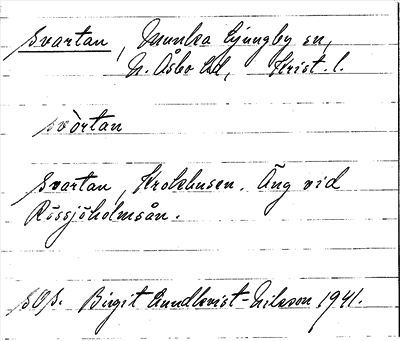 Svartan, Munka Ljungby sn,
N. Åsbo hd, Krist. l.
svòrtan
Svartan, Krokhusen. Äng vid
Rössjöholmsån.
SOS. Birgit Lundkvist-Nilsson 1941.